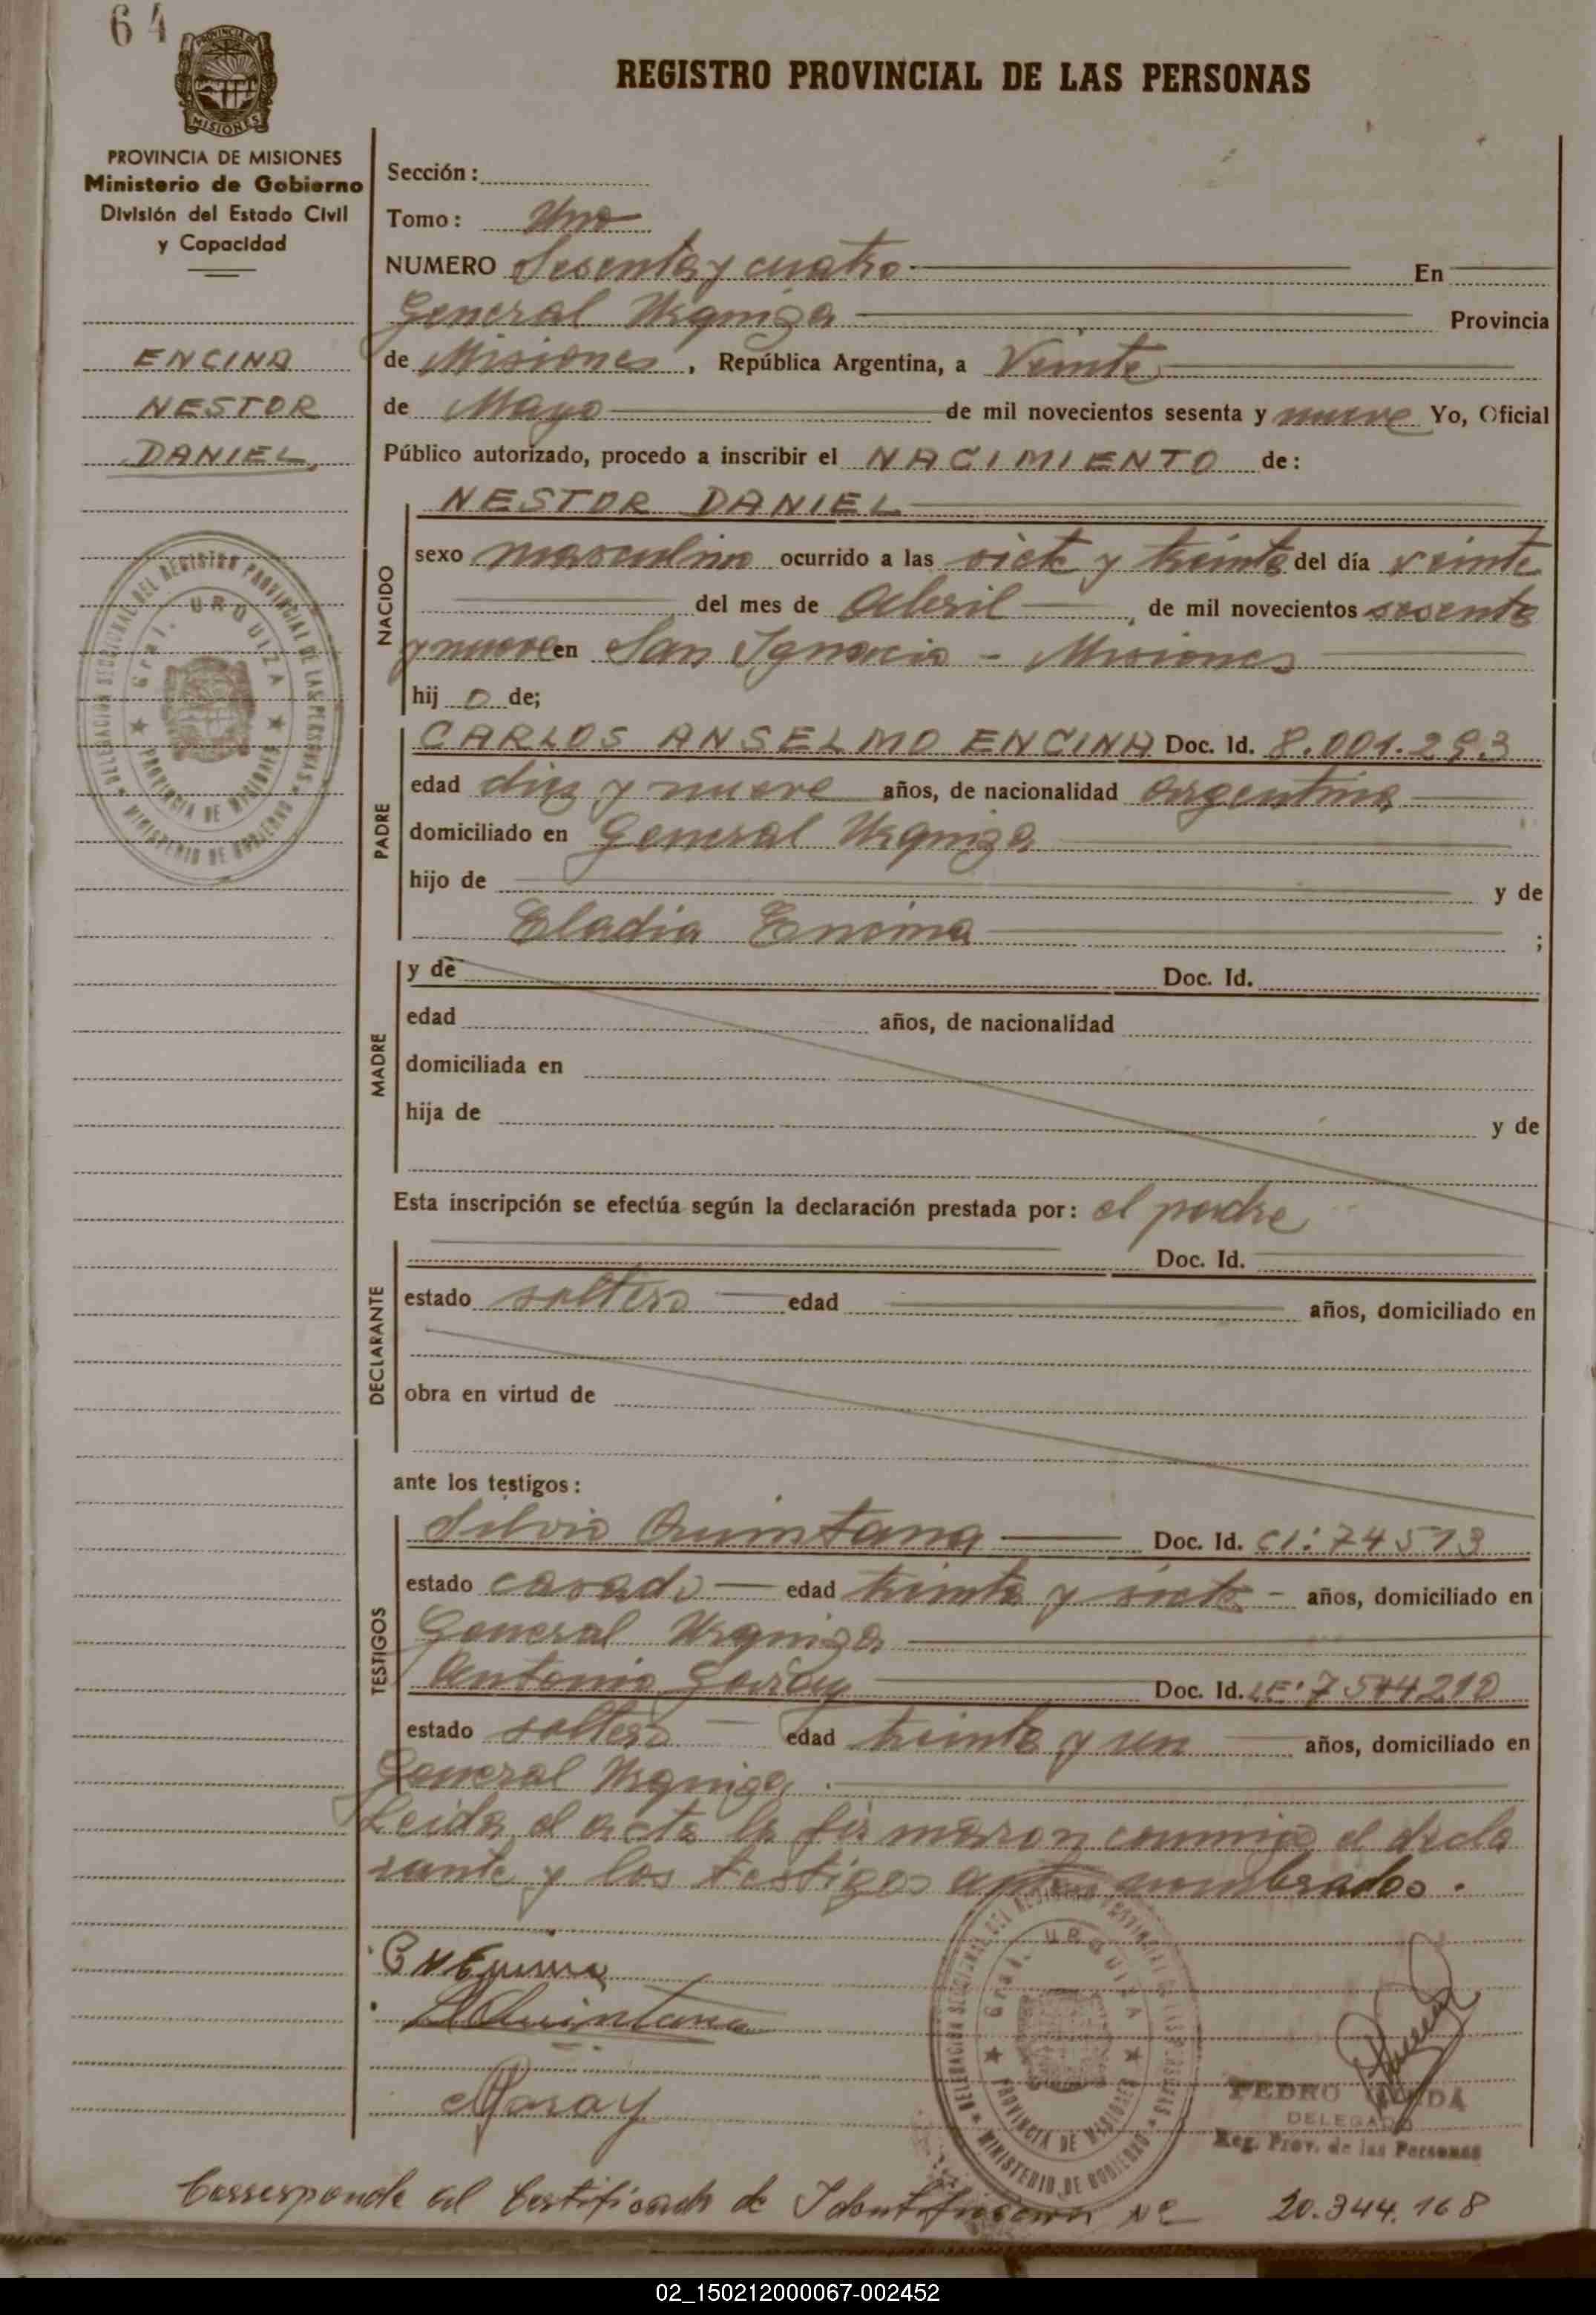 64
REGISTRO PROVINCIAL DE LAS PERSONAS
PROVINCIA DE MISIONES
Ministerio de Gobierno
División del Estado Civil
y Capacidad
Sección:
Tomo: Uno
NUMERO Sesenta y cuatro En
General Urquiza Provincia
de Misiones, República Argentina, a Veinte
de Mayo de mil novecientos sesenta y nueve Yo, Oficial
Público autorizado, procedo a inscribir el NACIMIENTO de:
ENCINA
NESTOR
DANIEL
NACIDO
NESTOR DANIEL
sexo masculino ocurrido a las siete y treinta del día veinte
del mes de Abril, de mil novecientos sesenta
y nueve en San Ignacio - Misiones
hij o de;
PADRE
CARLOS ANSELMO ENCINA Doc. Id. 8.001.293
edad diez y nueve años, de nacionalidad Argentina
domiciliado en General Urquiza
hijo de y de
Eladia Encina ;
MADRE
y de Doc. Id.
edad años, de nacionalidad
domiciliada en
hija de y de
Esta inscripción se efectúa según la declaración prestada por: el padre
DECLARANTE
Doc. Id.
estado soltero edad años, domiciliado en
obra en virtud de
ante los testigos:
TESTIGOS
Silvio Quintana Doc. Id. CI: 74513
estado casado edad treinta y siete - años, domiciliado en
General Urquiza
Antonio Garay Doc. Id. LE: 7544210
estado soltero edad treinta y un años, domiciliado en
General Urquiza.
Leida el acta la firmaron conmigo el decla
rante y los testigos antes nombrados.
C A Encina
S Quintana
AGaray
DELEGACION SECCIONAL DEL REGISTRO PROVINCIAL DE LAS PERSONAS
Gral. URQUIZA
PROVINCIA DE MISIONES
MINISTERIO DE GOBIERNO
PEDRO
DELEGADO
Reg. Prov. de las Personas
Corresponde al Certificado de Identificacion Nº 20.344.168
02_150212000067-002452